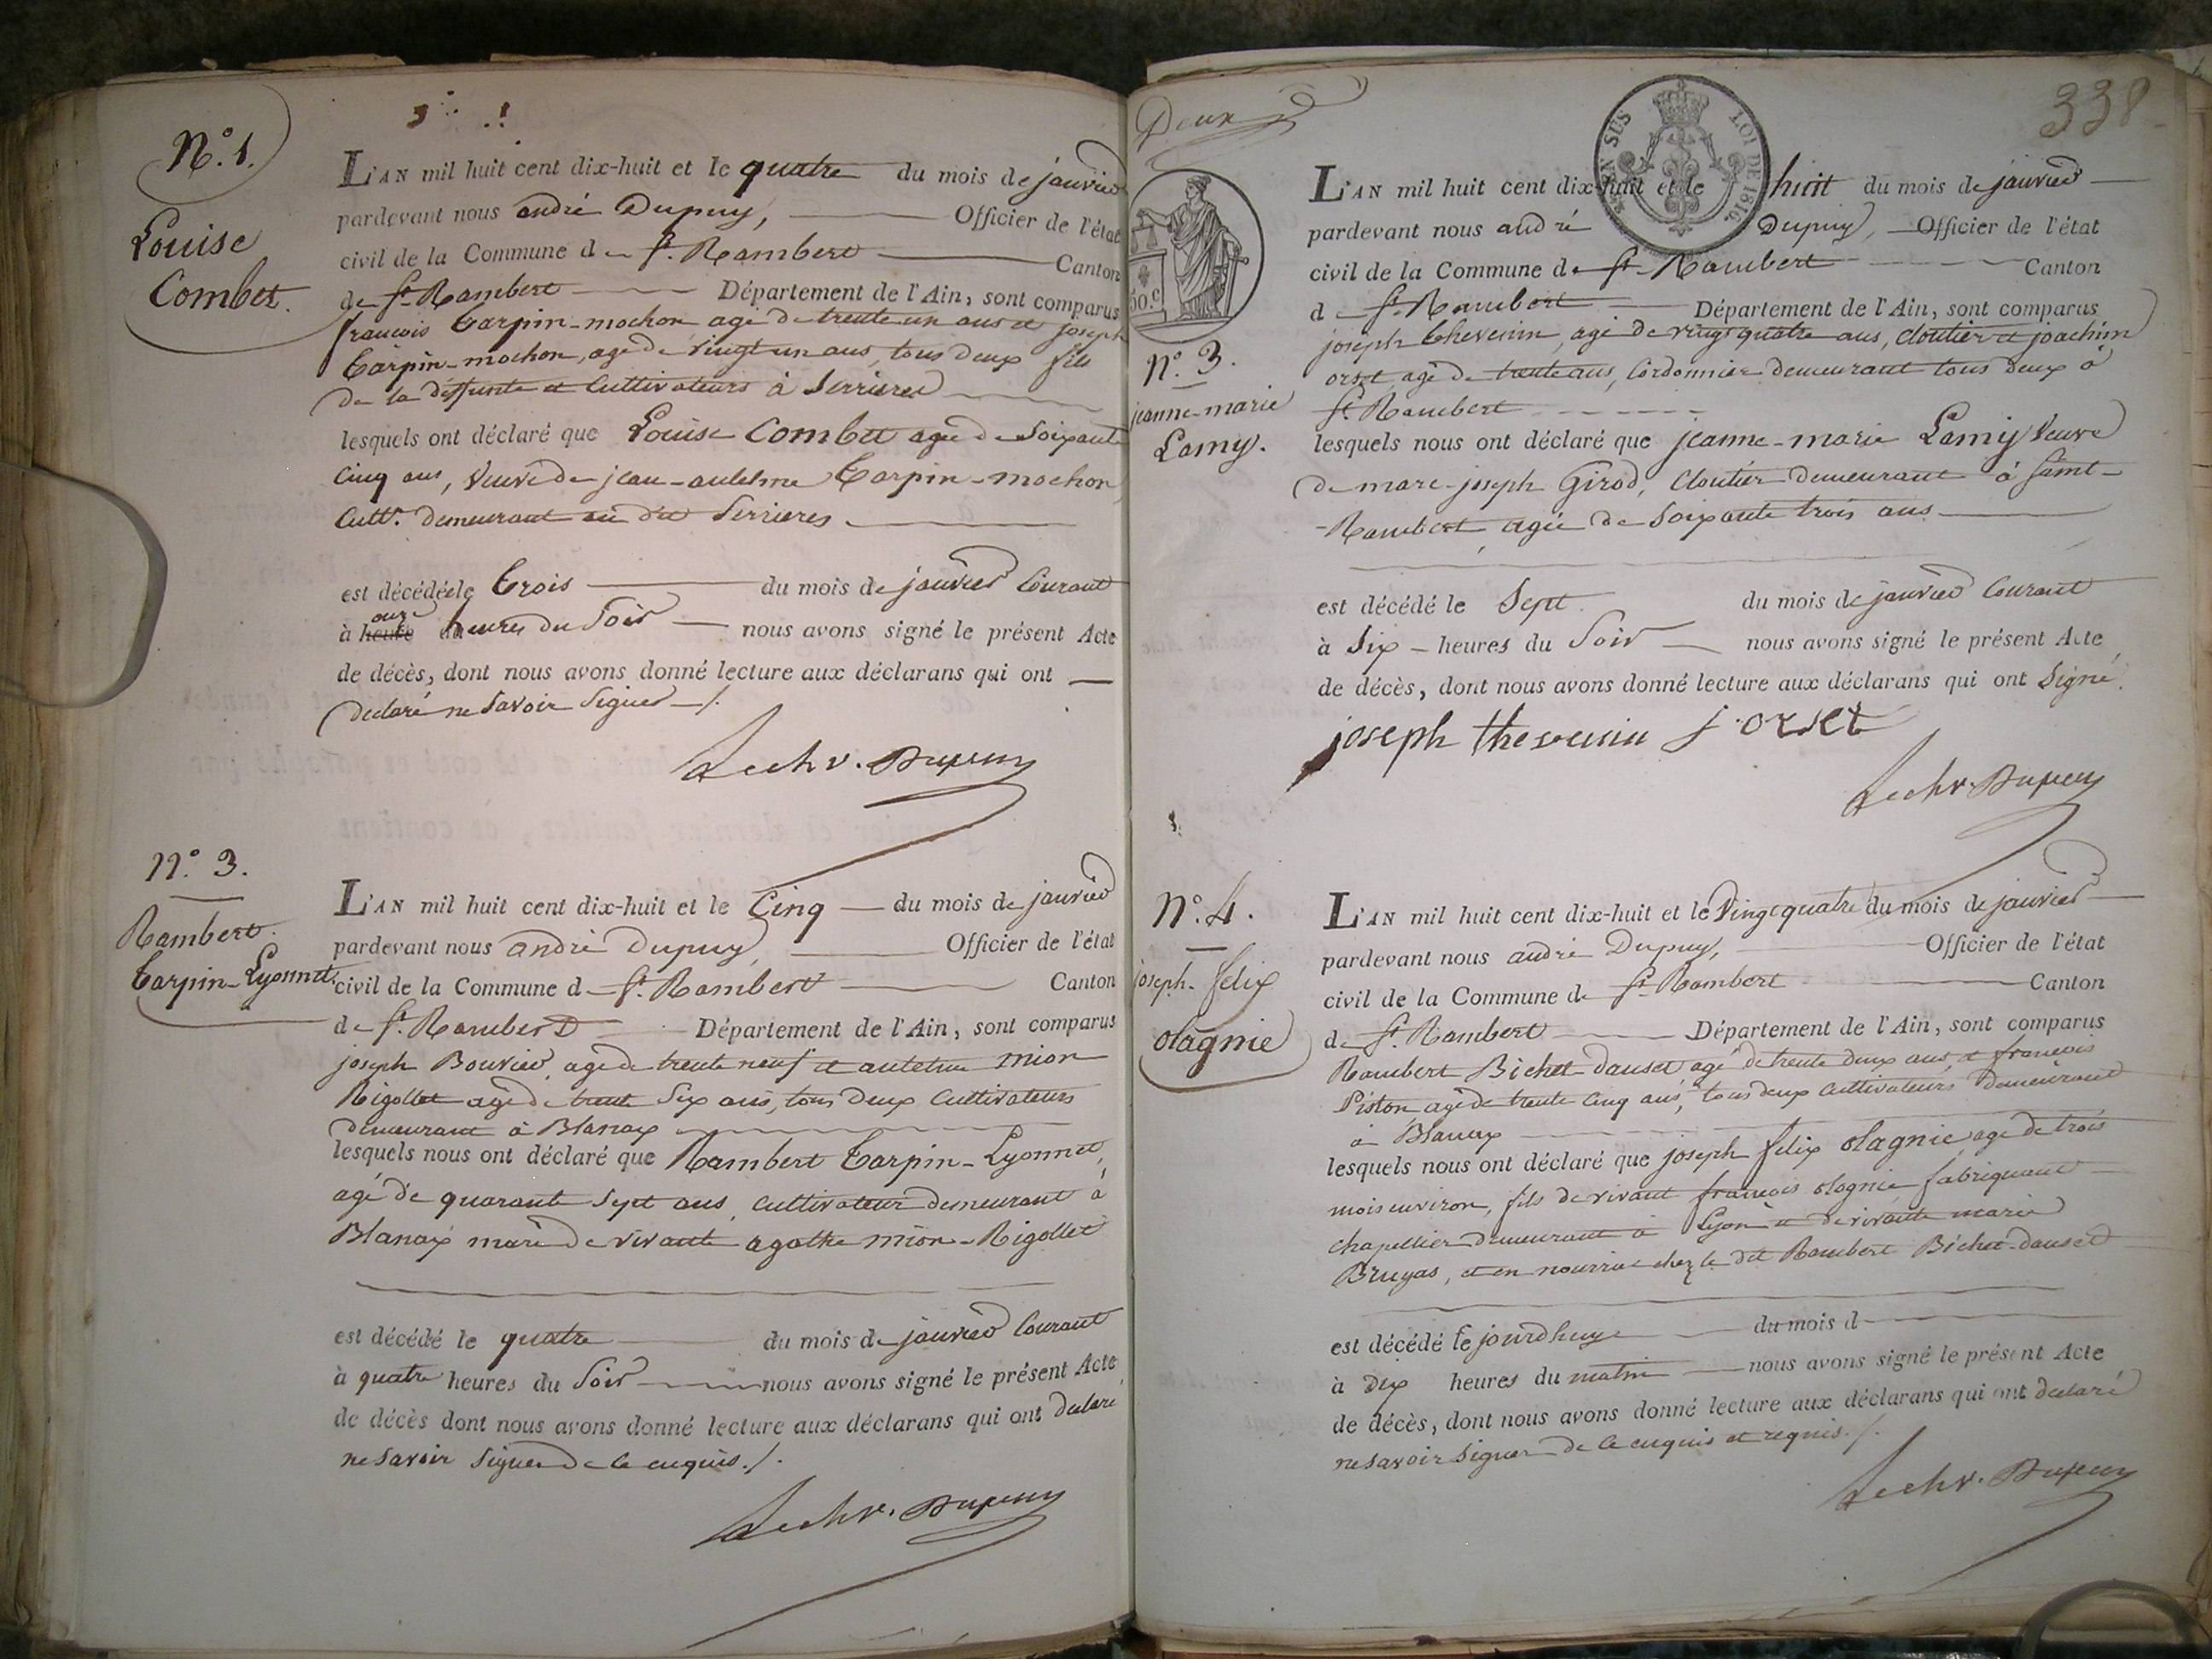 N.º 1.
Louise
Combet.
L'AN mil huit cent dix-huit et le quatre du mois de janvier
pardevant nous andré Dupuy, Officier de l'état
civil de la Commune de St. Rambert Canton
de St. Rambert Département de l'Ain, sont comparus
francois Carpin-mochon agé de trente un ans et joseph
Carpin-mochon, agé de vingt un ans, tous deux fils
de la deffunte et Cultivateurs à Serrieres
lesquels ont déclaré que Louise Combet agée de Soixante
Cinq ans, Veuve de jean-antelme Carpin-mochon
Cultr. demeurant au dit Serrieres
est décédée le trois du mois de janvier Courant
à heure heures du Soir nous avons signé le présent Acte
de décès, dont nous avons donné lecture aux déclarans qui ont
declaré ne Savoir Signer ./.
Dupuy
N.º 3.
Rambert
Carpin-Lyonnet.
L'AN mil huit cent dix-huit et le Cinq du mois de janvier
pardevant nous andré Dupuy, Officier de l'état
civil de la Commune de St. Rambert Canton
de St. Rambert Département de l'Ain, sont comparus
joseph Bouvier, agé de trente neuf et antelme mion
Rigollet agé de trente Six ans, tous Deux Cultivateurs
demeurant à Blanax
lesquels nous ont déclaré que Rambert Carpin-Lyonnet,
agé de quarante Sept ans, Cultivateur demeurant à
Blanax marie de vivante agathe mion-Rigollet
est décédé le quatre du mois de janvier Courant
à quatre heures du Soir nous avons signé le présent Acte
de décès dont nous avons donné lecture aux déclarans qui ont declaré
ne Savoir Signer de ce enquis ./.
Dupuy
Deux
338
EN SUS LOI DE 1816
50.c
N.º 3.
jeanne-marie
Lamy.
L'AN mil huit cent dix-huit et le huit du mois de janvier
pardevant nous andré Dupuy, Officier de l'état
civil de la Commune de St. Rambert Canton
d St. Rambert Département de l'Ain, sont comparus
joseph Thevenin, agé de vingt quatre ans, Cloutier et joachim
orset agé de trente ans, Cordonnier demeurant tous deux à
St. Rambert
lesquels nous ont déclaré que jeanne-marie Lamy Veuve
de marc-joseph Girod, Cloutier demeurant à Saint-
Rambert, agée de Soixante trois ans
est décédé le Sept du mois de janvier Courant
à Six heures du Soir nous avons signé le présent Acte
de décès, dont nous avons donné lecture aux déclarans qui ont Signé.
joseph thevenin j orset
Dupuy
N.º 4.
joseph-felix
olagnie
L'AN mil huit cent dix-huit et le Vingt quatre du mois de janvier
pardevant nous andré Dupuy, Officier de l'état
civil de la Commune de St. Rambert Canton
de St. Rambert Département de l'Ain, sont comparus
Rambert Bichet-danset agé de trente deux ans, et francois
Piston agé de trente Cinq ans, tous deux Cultivateurs demeurant
à Blanax
lesquels nous ont déclaré que joseph felix olagnie agé de trois
mois environ, fils de vivant francois olagnie fabriquant
chapellier demeurant à Lyon et de vivante marie
Bruyas, et en nourrice chez le dit Rambert Bichet-danset
est décédé le jourdhuy du mois d
à Dix heures du matin nous avons signé le présent Acte
de décès, dont nous avons donné lecture aux déclarans qui ont declaré
ne savoir Signer de ce enquis et requis ./.
Dupuy